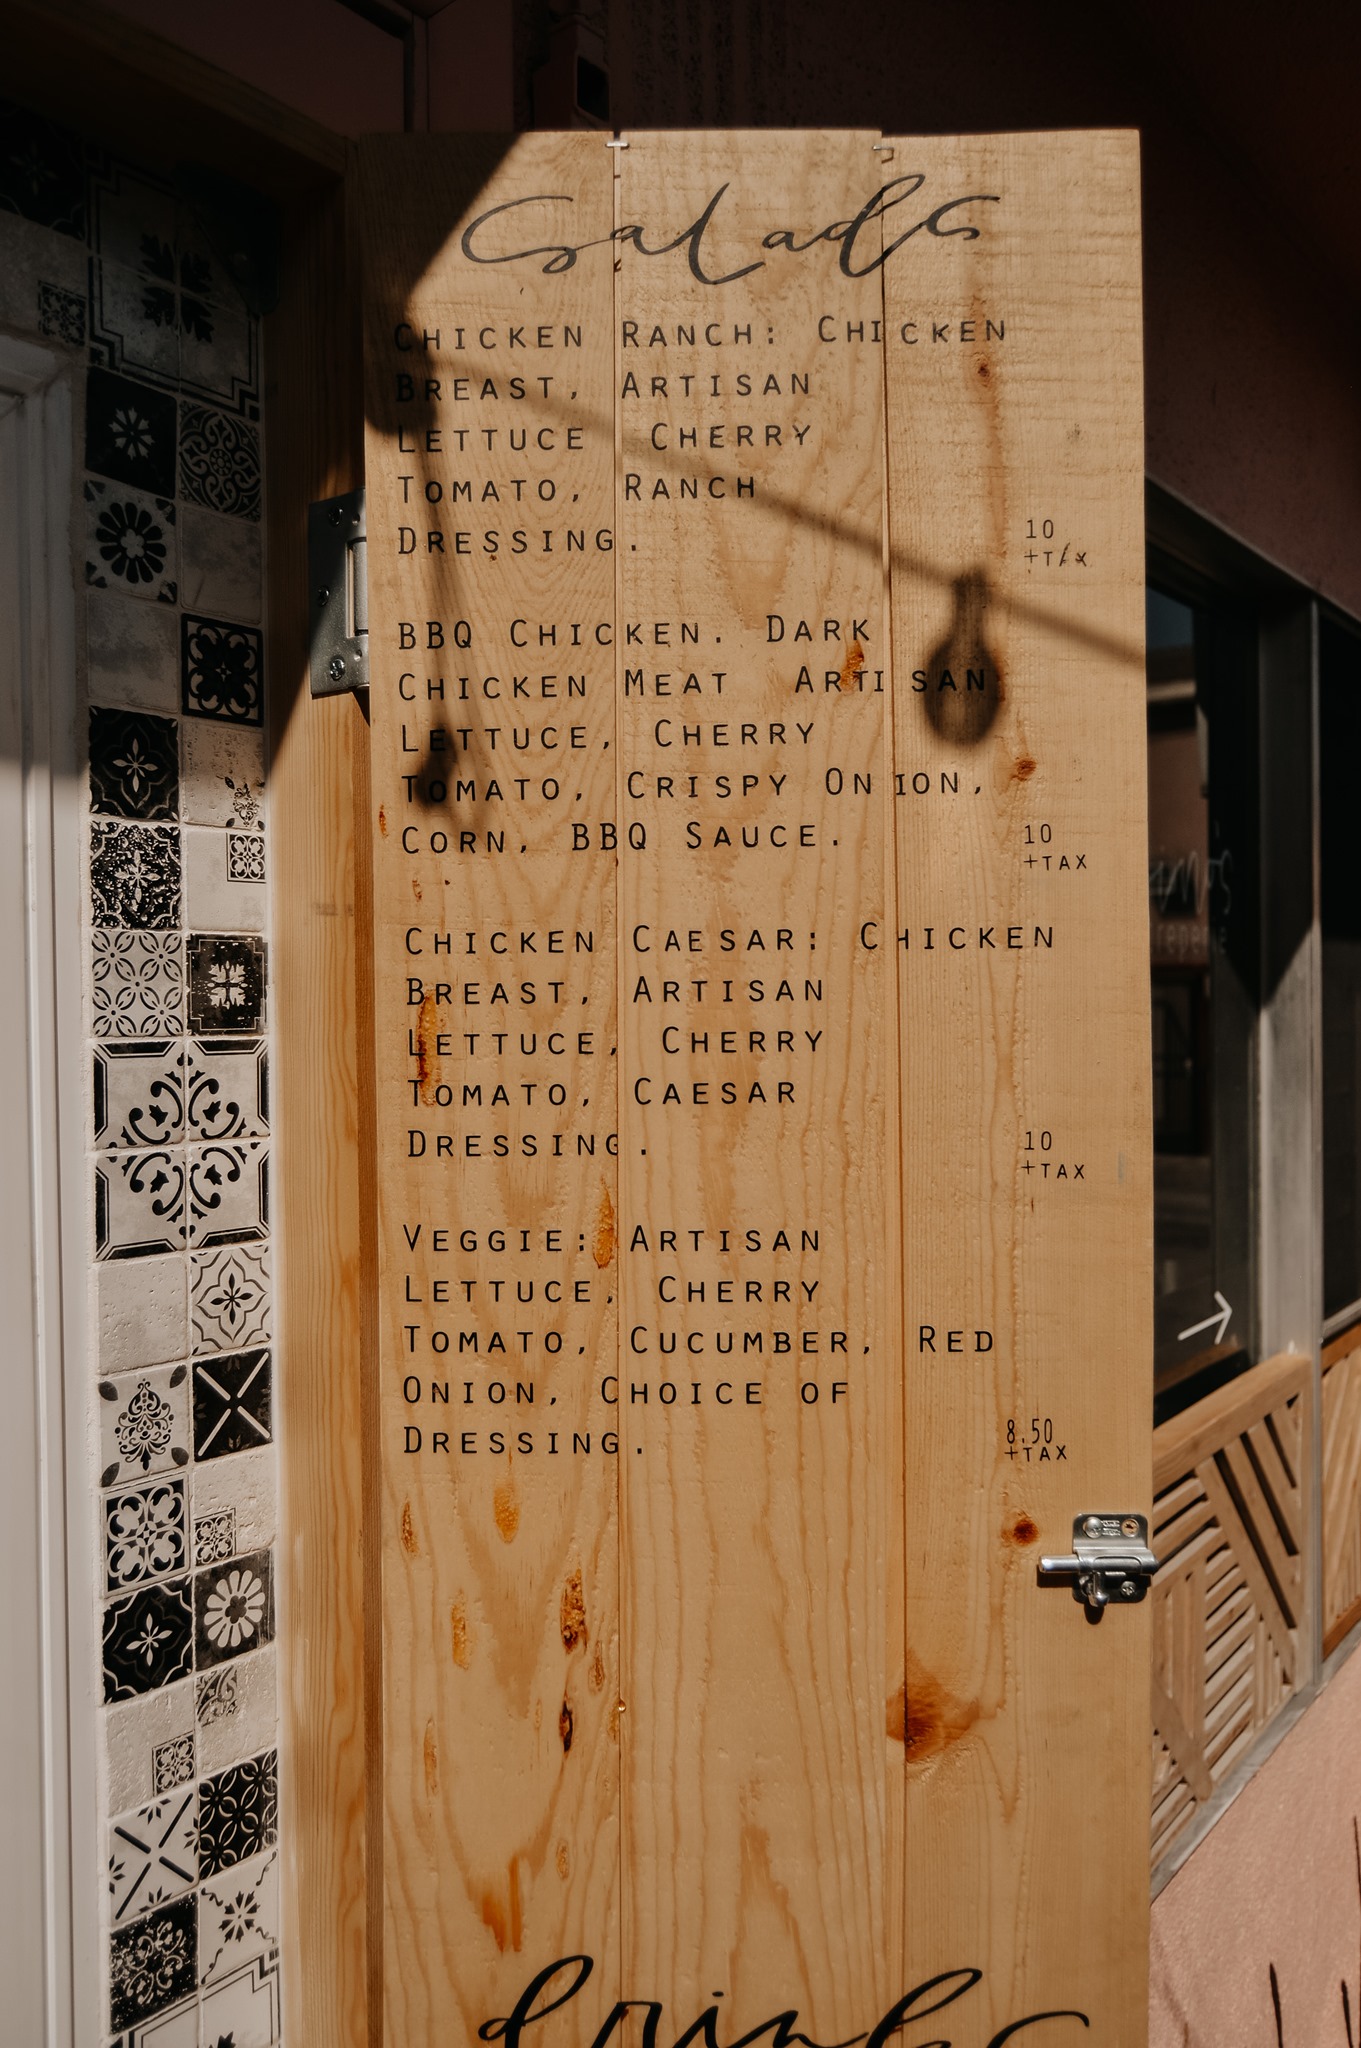 Salads
CHICKEN RANCH: CHICKEN
BREAST, ARTISAN
LETTUCE CHERRY
TOMATO, RANCH
DRESSING.
10
+TAX
BBQ CHICKEN. DARK
CHICKEN MEAT ARTISAN
LETTUCE, CHERRY
TOMATO, CRISPY ONION,
CORN, BBQ SAUCE.
10
+TAX
CHICKEN CAESAR: CHICKEN
BREAST, ARTISAN
LETTUCE, CHERRY
TOMATO, CAESAR
DRESSING.
10
+TAX
VEGGIE: ARTISAN
LETTUCE, CHERRY
TOMATO, CUCUMBER, RED
ONION, CHOICE OF
DRESSING.
8.50
+TAX
drinks